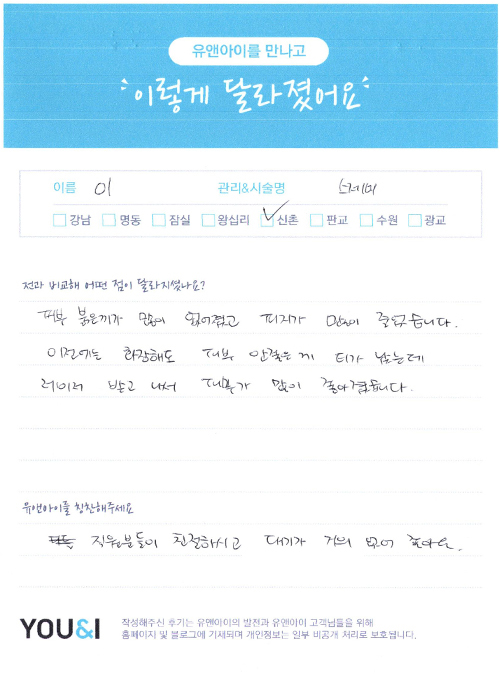 유앤아이를 만나고
이렇게 달라졌어요
이름 이 관리&시술명 스케미
강남 명동 잠실 왕십리 신촌 판교 수원 광교
전과 비교해 어떤 점이 달라지셨나요?
피부 붉은끼가 많이 없어졌고 피지가 많이 줄었습니다.
이전에는 화장해도 피부 안좋은게 티가 났는데
레이저 받고 나서 피부가 많이 좋아졌습니다.
유앤아이를 칭찬해주세요
직원분들이 친절하시고 대기가 거의 없어 좋아요.
YOU&I
작성해주신 후기는 유앤아이의 발전과 유앤아이 고객님들을 위해
홈페이지 및 블로그에 기재되며 개인정보는 일부 비공개 처리로 보호됩니다.